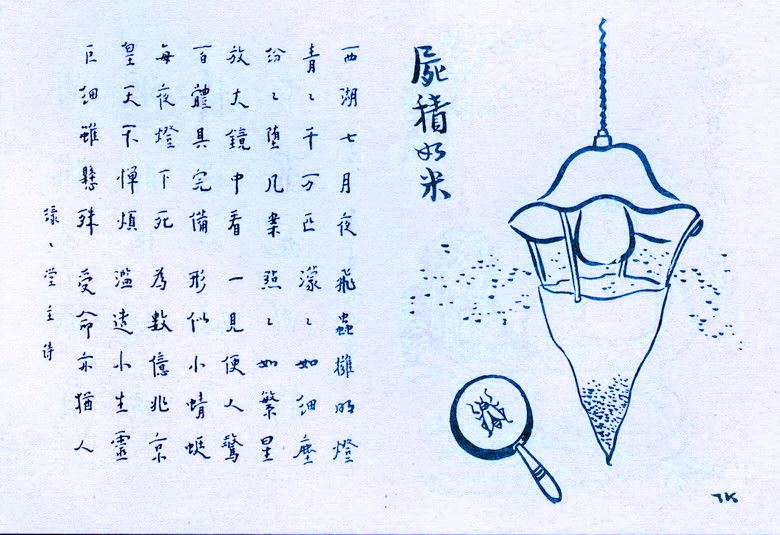 屍積如米
西湖七月夜 飛蟲擁明燈
青〻千万匹 濛〻如細塵
紛〻墮几案 點〻如繁星
放大鏡中看 一見便人驚
百體具完備 形似小蜻蜓
每夜燈下死 為數億兆京
皇天不憚煩 濫造小生靈
巨細雖懸殊 受命亦猶人
緣〻堂主詩
TK